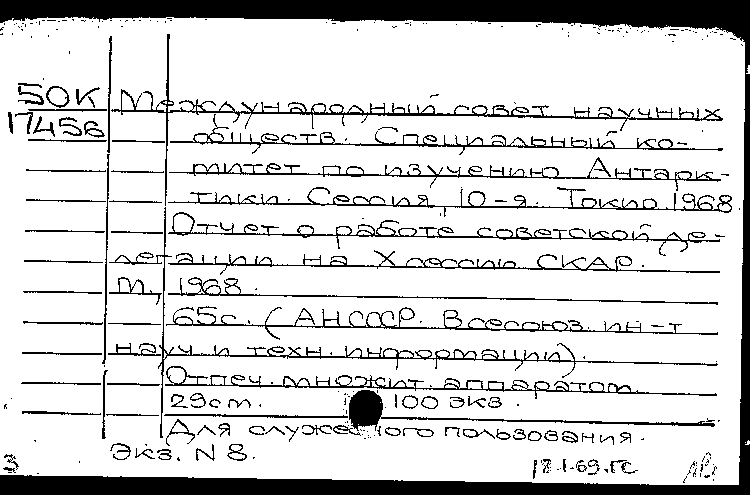 50К Международный совет научных
17456 обществ. Специальный ко-
митет по изучению Антарк-
тики. Сессия, 10-я. Токио. 1968.
Отчет о работе советской де-
легации на X сессии СКАР.
М., 1968.
65с. (АН СССР. Всесоюз. ин-т
науч. и техн. информации).
Отпеч. множит. аппаратом.
29см. 100 экз.
Для служебного пользования.
Экз. N 8.
18.I.69.ГС
3